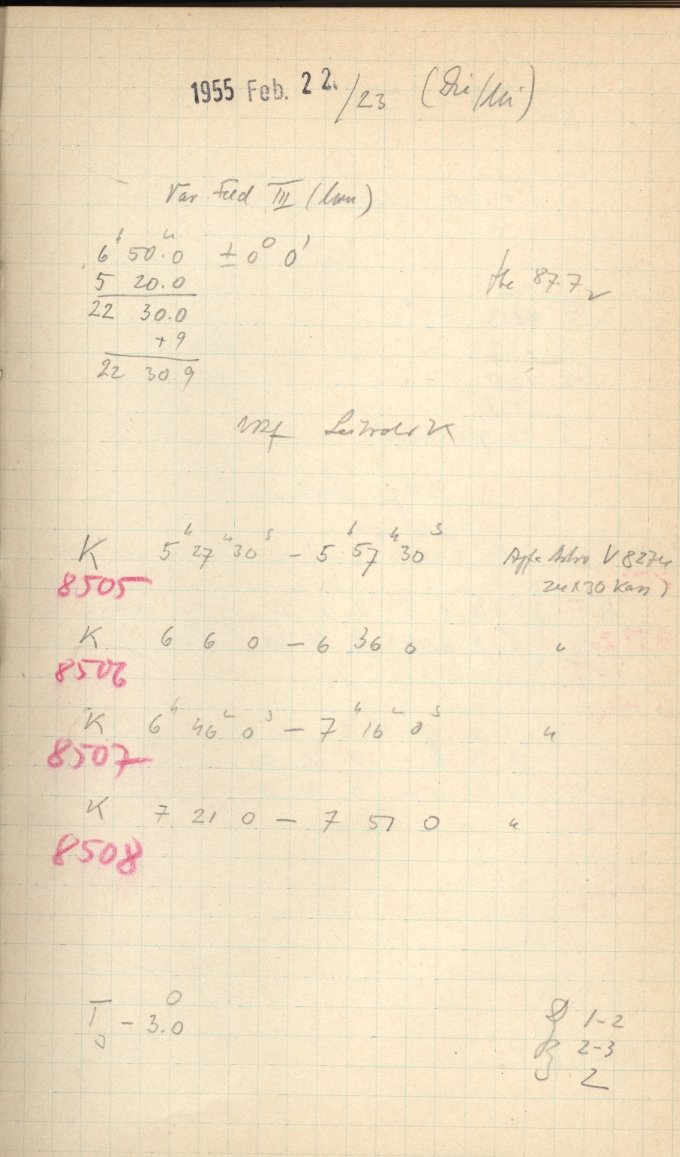 1955 Feb. 22./23 (Di/Mi)
Var Feld III (Mon)
6h 50.0m ± 0° 0'
5 20.0
22 30.0
+9
22 30.9
87.7
K 5h 27m 30s – 5h 57m 30s Agfa Astro
8505
K 6 6 0 – 6 36 0 "
8506
K 6h 46m 0s – 7h 16m 0s "
8507
K 7 21 0 – 7 51 0 "
8508
T – 3.0°
D 1-2
R 2-3
2